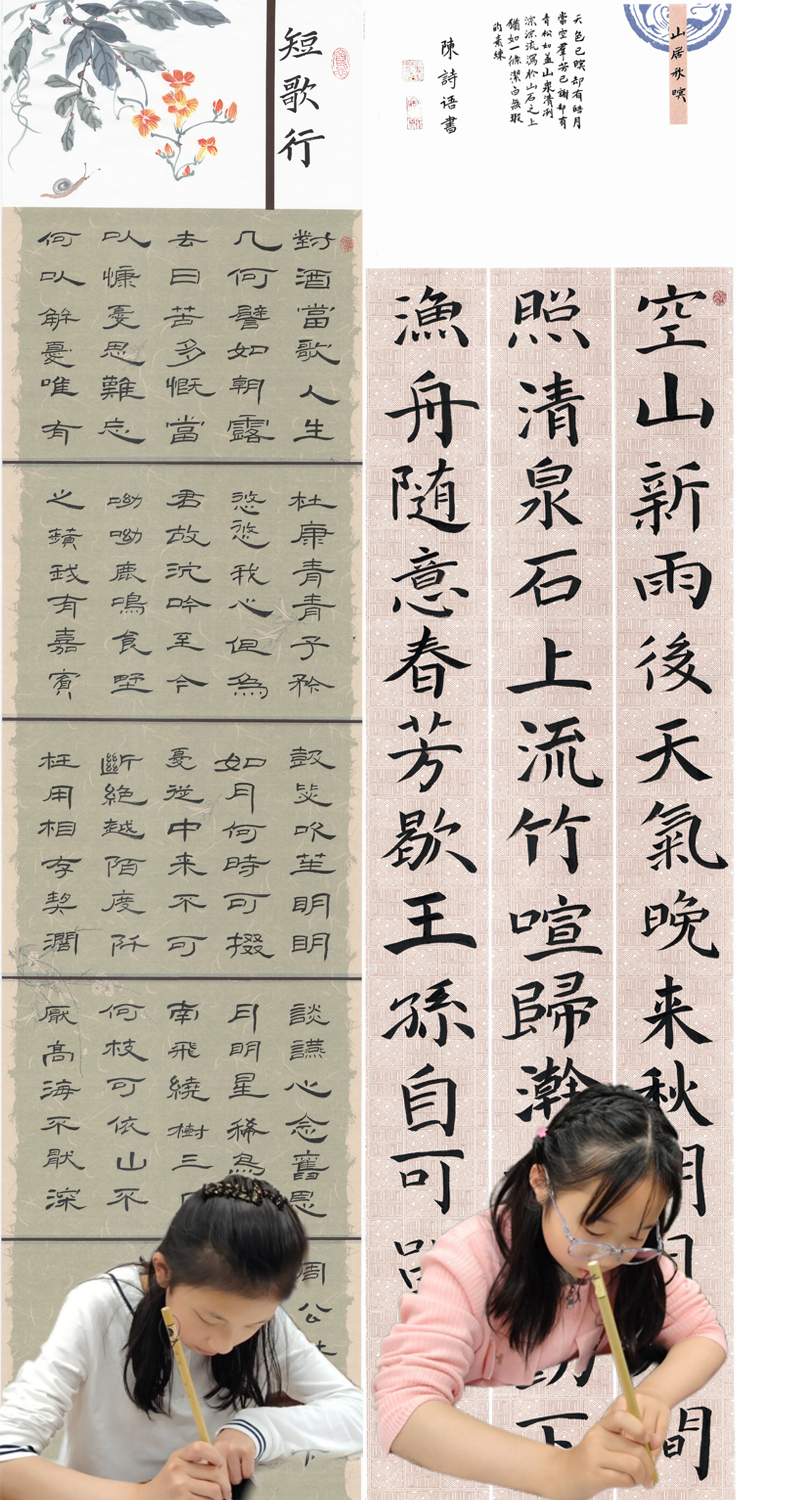 短歌行
對酒當歌人生
几何譬如朝露
去日苦多慨當
以慷憂思難忘
何以解憂唯有
杜康青青子衿
悠悠我心但為
君故沈吟至今
呦呦鹿鳴食野
之蘋我有嘉賓
鼓瑟吹笙明明
如月何時可掇
憂從中来不可
斷絕越陌度阡
枉用相存契闊
談讌心念舊恩
月明星稀烏
南飛繞樹三
何枝可依山不
厭高海不厭深
周公
山居秋暝
空山新雨後天氣晚来秋明月間
照清泉石上流竹喧歸澣動下
漁舟随意春芳歇王孫自可
天色已暝却有皓月
當空羣芳已謝却有
青松如盖山泉清冽
淙淙流瀉於山石之上
猶如一條潔白無瑕
的素練
陳詩语書